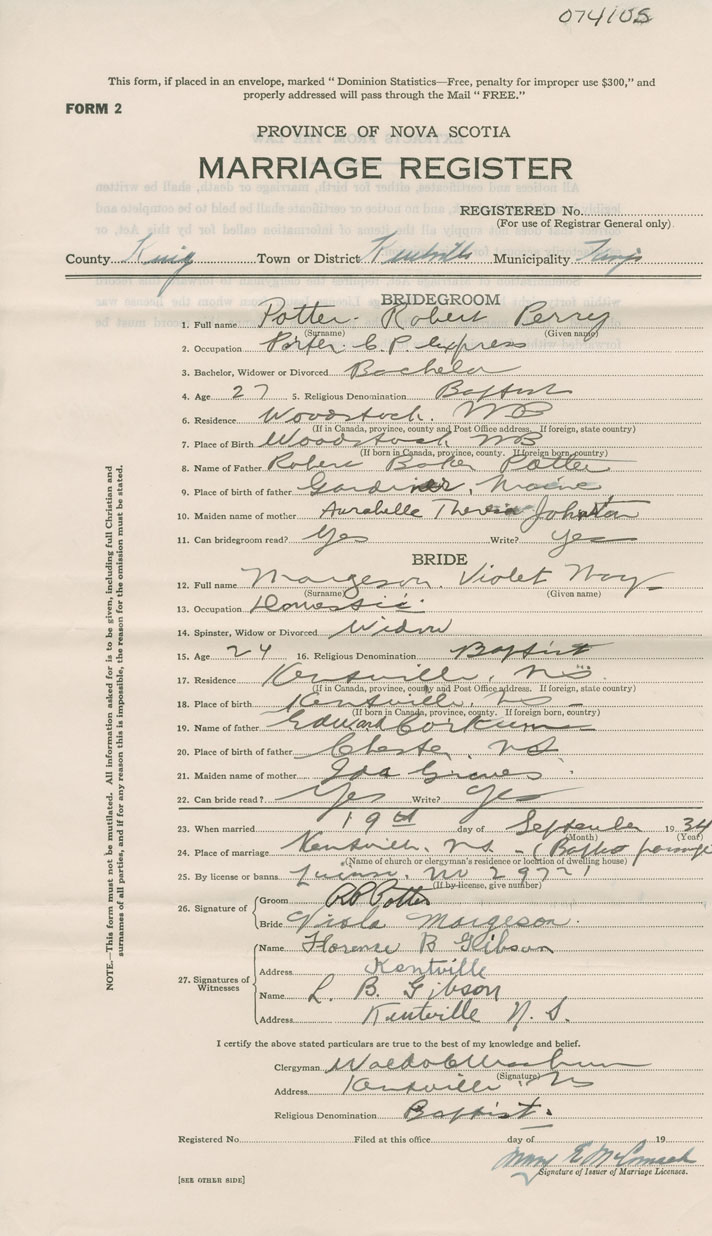 074105
This form, if placed in an envelope, marked " Dominion Statistics—Free, penalty for improper use $300," and
properly addressed will pass through the Mail " FREE."
FORM 2
PROVINCE OF NOVA SCOTIA
MARRIAGE REGISTER
REGISTERED No.
(For use of Registrar General only)
County Kings Town or District Kentville Municipality Kings
BRIDEGROOM
1. Full name Potter Robert Perry
(Surname) (Given name)
2. Occupation Porter C.P. express
3. Bachelor, Widower or Divorced Bachelor
4. Age 27 5. Religious Denomination Baptist
6. Residence Woodstock. NB
(If in Canada, province, county and Post Office address. If foreign, state country)
7. Place of Birth Woodstock NB
(If born in Canada, province, county. If foreign born, country)
8. Name of Father Robert Baker Potter
9. Place of birth of father Gardiner, Maine
10. Maiden name of mother Aurabelle Theresa Johnston
11. Can bridegroom read? Yes Write? Yes
BRIDE
12. Full name Margeson. Violet May
(Surname) (Given name)
13. Occupation Domestic
14. Spinster, Widow or Divorced Widow
15. Age 24 16. Religious Denomination Baptist
17. Residence Kentville, N.S.
(If in Canada, province, county and Post Office address. If foreign, state country)
18. Place of birth Kentville, N.S.
(If born in Canada, province, county. If foreign born, country)
19. Name of father Edward Corkum
20. Place of birth of father Chester, N.S.
21. Maiden name of mother Ida Graves
22. Can bride read? Yes Write? Yes
23. When married 19th day of September 1934
(Month) (Year)
24. Place of marriage Kentville, N.S. - (Baptist parsonage
(Name of church or clergyman's residence or location of dwelling house)
25. By license or banns License No 29721
(If by license, give number)
26. Signature of
Groom R P Potter
Bride Viola Margeson.
27. Signatures of Witnesses
Name Florence B Gibson
Address Kentville
Name L. B. Gibson
Address Kentville N.S.
I certify the above stated particulars are true to the best of my knowledge and belief.
Clergyman Waldo C Machum
(Signature)
Address Kentville, NS
Religious Denomination Baptist.
Registered No. Filed at this office day of 19
Mary E McCormack
Signature of Issuer of Marriage Licenses.
[SEE OTHER SIDE]
NOTE.—This form must not be mutilated. All information asked for is to be given, including full Christian and
surnames of all parties, and if for any reason this is impossible, the reason for the omission must be stated.